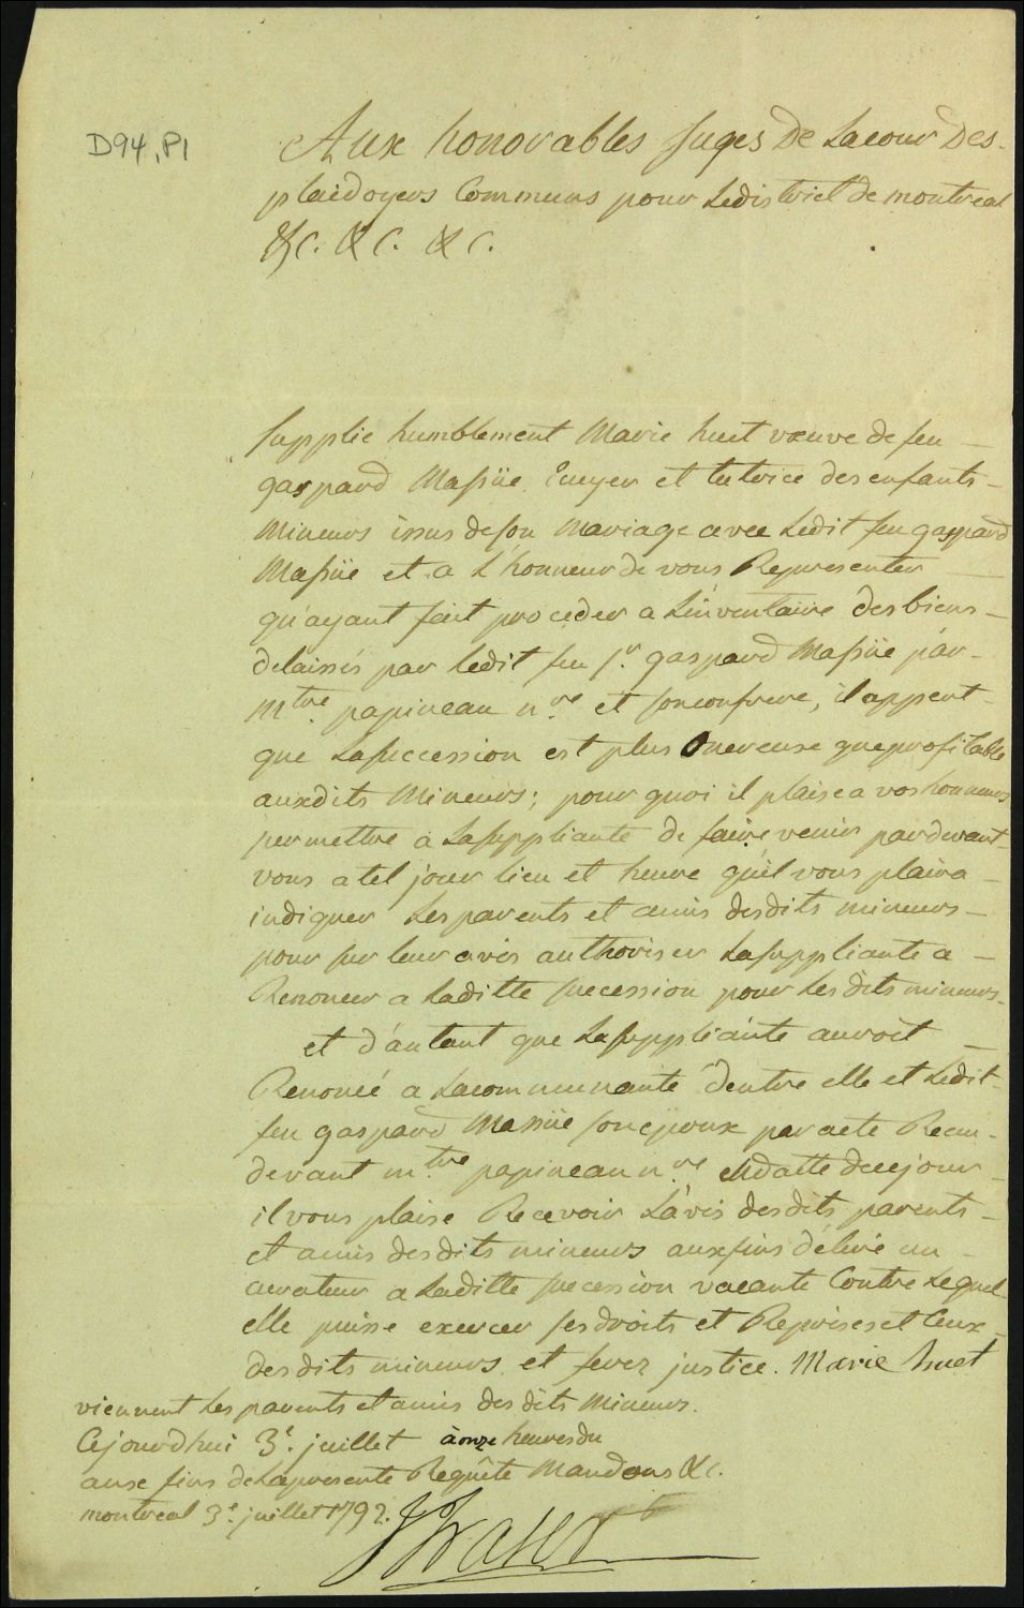 D94, P1
Aux honorables Juges De Lacour Des
plaidoyers Communs pour Ledistrict De montreal
&c. &c. &c.
Supplie humblement Marie huet væuve de feu
gaspard Massüe Ecuyer et tutrice des enfants
Mineurs issus de son Mariage avec Ledit feu gaspard
Massüe et a L'honneur de vous Representer
qu'ayant fait proceder a L'inventaire Des biens
delaissés par ledit feu Sr. gaspard Massüe par
Mtre. papineau nre. et son confrere, il appert
que La succession est plus Onereuse que profitable
auxdits Mineurs; pour quoi il plaise a vos honneurs
permettre a La suppliante de faire venir par devant
vous a tel jour lieu et heure qu'il vous plaira
indiquer Les parents et amis desdits mineurs
pour sur leur avis authoriser La suppliante a
Renoncer a Laditte succession pour Les dits mineurs
et d'autant que La suppliante auroit
Renoncé a Lacommunauté d'entre elle et Ledit
feu gaspard Massüe son epoux par acte Recu
devant mtre. papineau nre. en datte de ce jour
il vous plaise Recevoir L'avis desdits parents
et amis desdits mineurs aux fins d'eliré un
curateur a Laditte succession vacante Contre Lequel
elle puisse exercer ses droits et Reprises et Ceux
desdits mineurs et ferez justice. Marie huet
viennent Les parents et amis des dits Mineurs.
Cejourdhui 3e. juillet à onze heures du
aux fins de La presente Requête Mandons &c.
montreal 3e. juillet 1792.
J Fraser